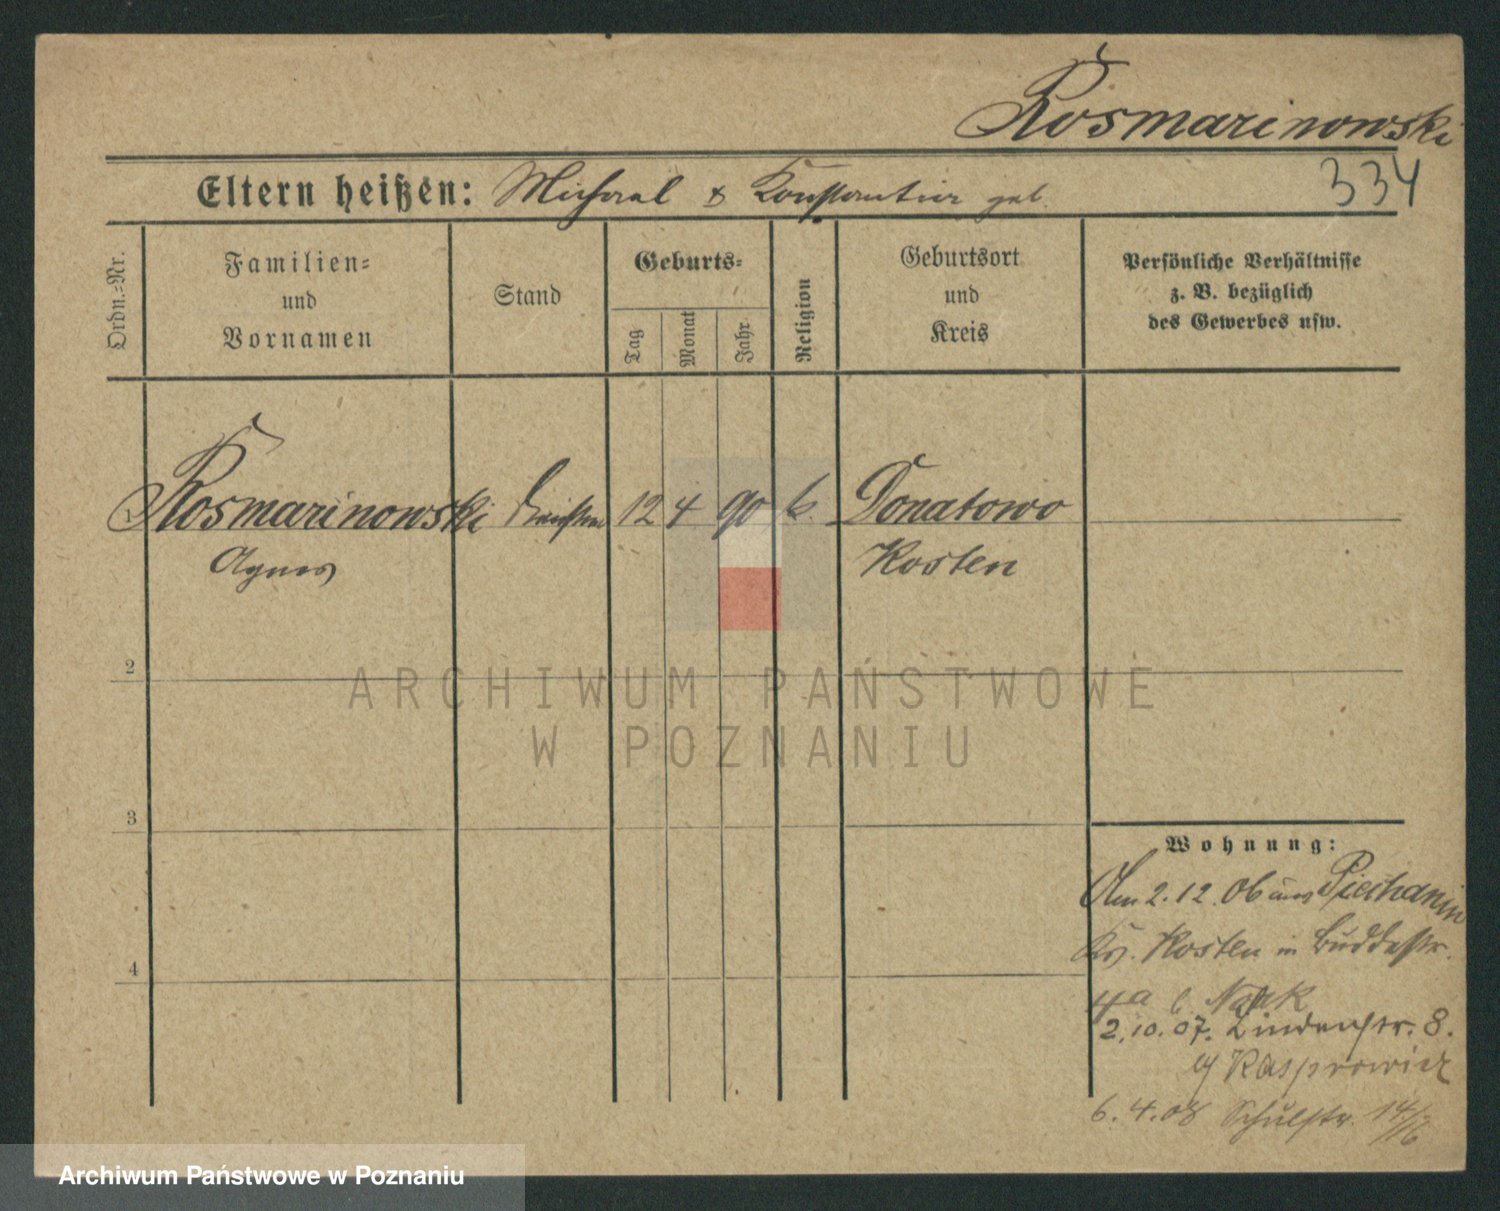 Rosmarinowski
334
Eltern heißen: Michael & Konstantia geb.
Ordn.-Nr.
Familien-
und
Vornamen
Stand
Geburts-
Tag
Monat
Jahr
Religion
Geburtsort
und
Kreis
Persönliche Verhältnisse
z. B. bezüglich
des Gewerbes usw.
Rosmarinowski 12 4 90 Donatowo
Agnes Kosten
2
ARCHIWUM PAŃSTWOWE
W POZNANIU
3
4
Wohnung:
Am 2.12.06 aus Piechanin
Krs. Kosten in Buddestr.
4a b. Nowak
2.10.07. Lindenstr. 8.
b/ Kasprowicz
6.4.08 Schulstr. 14/16
Archiwum Państwowe w Poznaniu